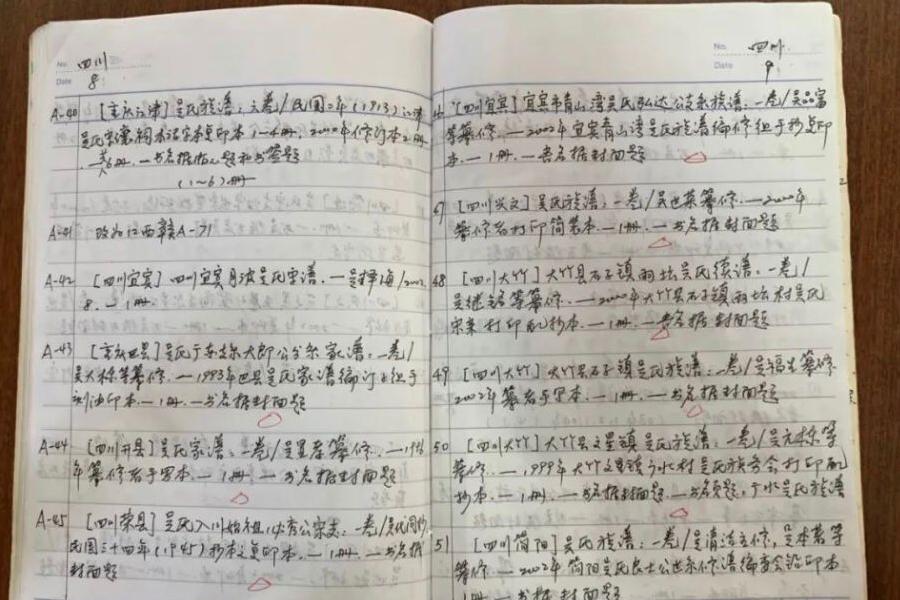 No. 四川
Date 8
A-40 [重庆江津]吴氏族谱:六卷/民国二年(1913)江津
吴氏宗祠 本 复印本 1—4册. 2000年修订本2册.
共6册. 一书名据 题和书签题
(1~6)册
A-41 改为江西赣A-71
A-42 [四川宜宾]四川宜宾月波吴氏宗谱. 一吴择海/2002.
8. 一1册.
A-43 [重庆巴县]吴氏 大郎公分系家谱:一卷/
吴大 等纂修. 一1993年巴县吴氏家谱编订小组手
刻油印本. 一1册. 一书名据封面题
A-44 [四川开县]吴氏家谱:二卷/吴 纂修. 一19
年纂修者手写本. 一1册. 一书名据封面题
A-45 [四川荣县]吴氏入川始祖 公宗支:一卷/吴代 抄
民国三十四年(1945)抄本之复印本. 一1册. 一书名据
封面题
No. 四川
Date 9
[四川宜宾]宜宾市青山湾吴氏弘达公支系族谱:一卷/吴品富
等纂修. 一2002年宜宾青山湾吴氏族谱编修组手抄复印
本. 一1册. 一书名据封面题
47 [四川兴文]吴氏族谱:一卷/吴世英纂修. 一2000年
纂修者打印简装本. 一1册. 一书名据封面题
48 [四川大竹]大竹县石子镇 坛吴氏续谱:一卷/
吴继 等纂修. 一2000年大竹县石子镇 坛村吴氏
宗亲打印配抄本. 一1册. 一书名据封面题
49 [四川大竹]大竹县石子镇吴氏族谱:一卷/吴福生纂修
2002年纂者手写本. 一1册. 一书名据封面题
50 [四川大竹]大竹县文星镇吴氏族谱:一卷/吴元栋等
纂修. 一1999年大竹文星镇 水村吴氏族务会打印配
抄本. 一1册. 一书名据封面题. 一书名页题: 水吴氏族谱
51 [四川简阳]吴氏族谱:一卷/吴清 修,吴本 等
纂修. 一2002年简阳吴氏良士公世系修谱编委会铅印本
1册. 一书 据封面题